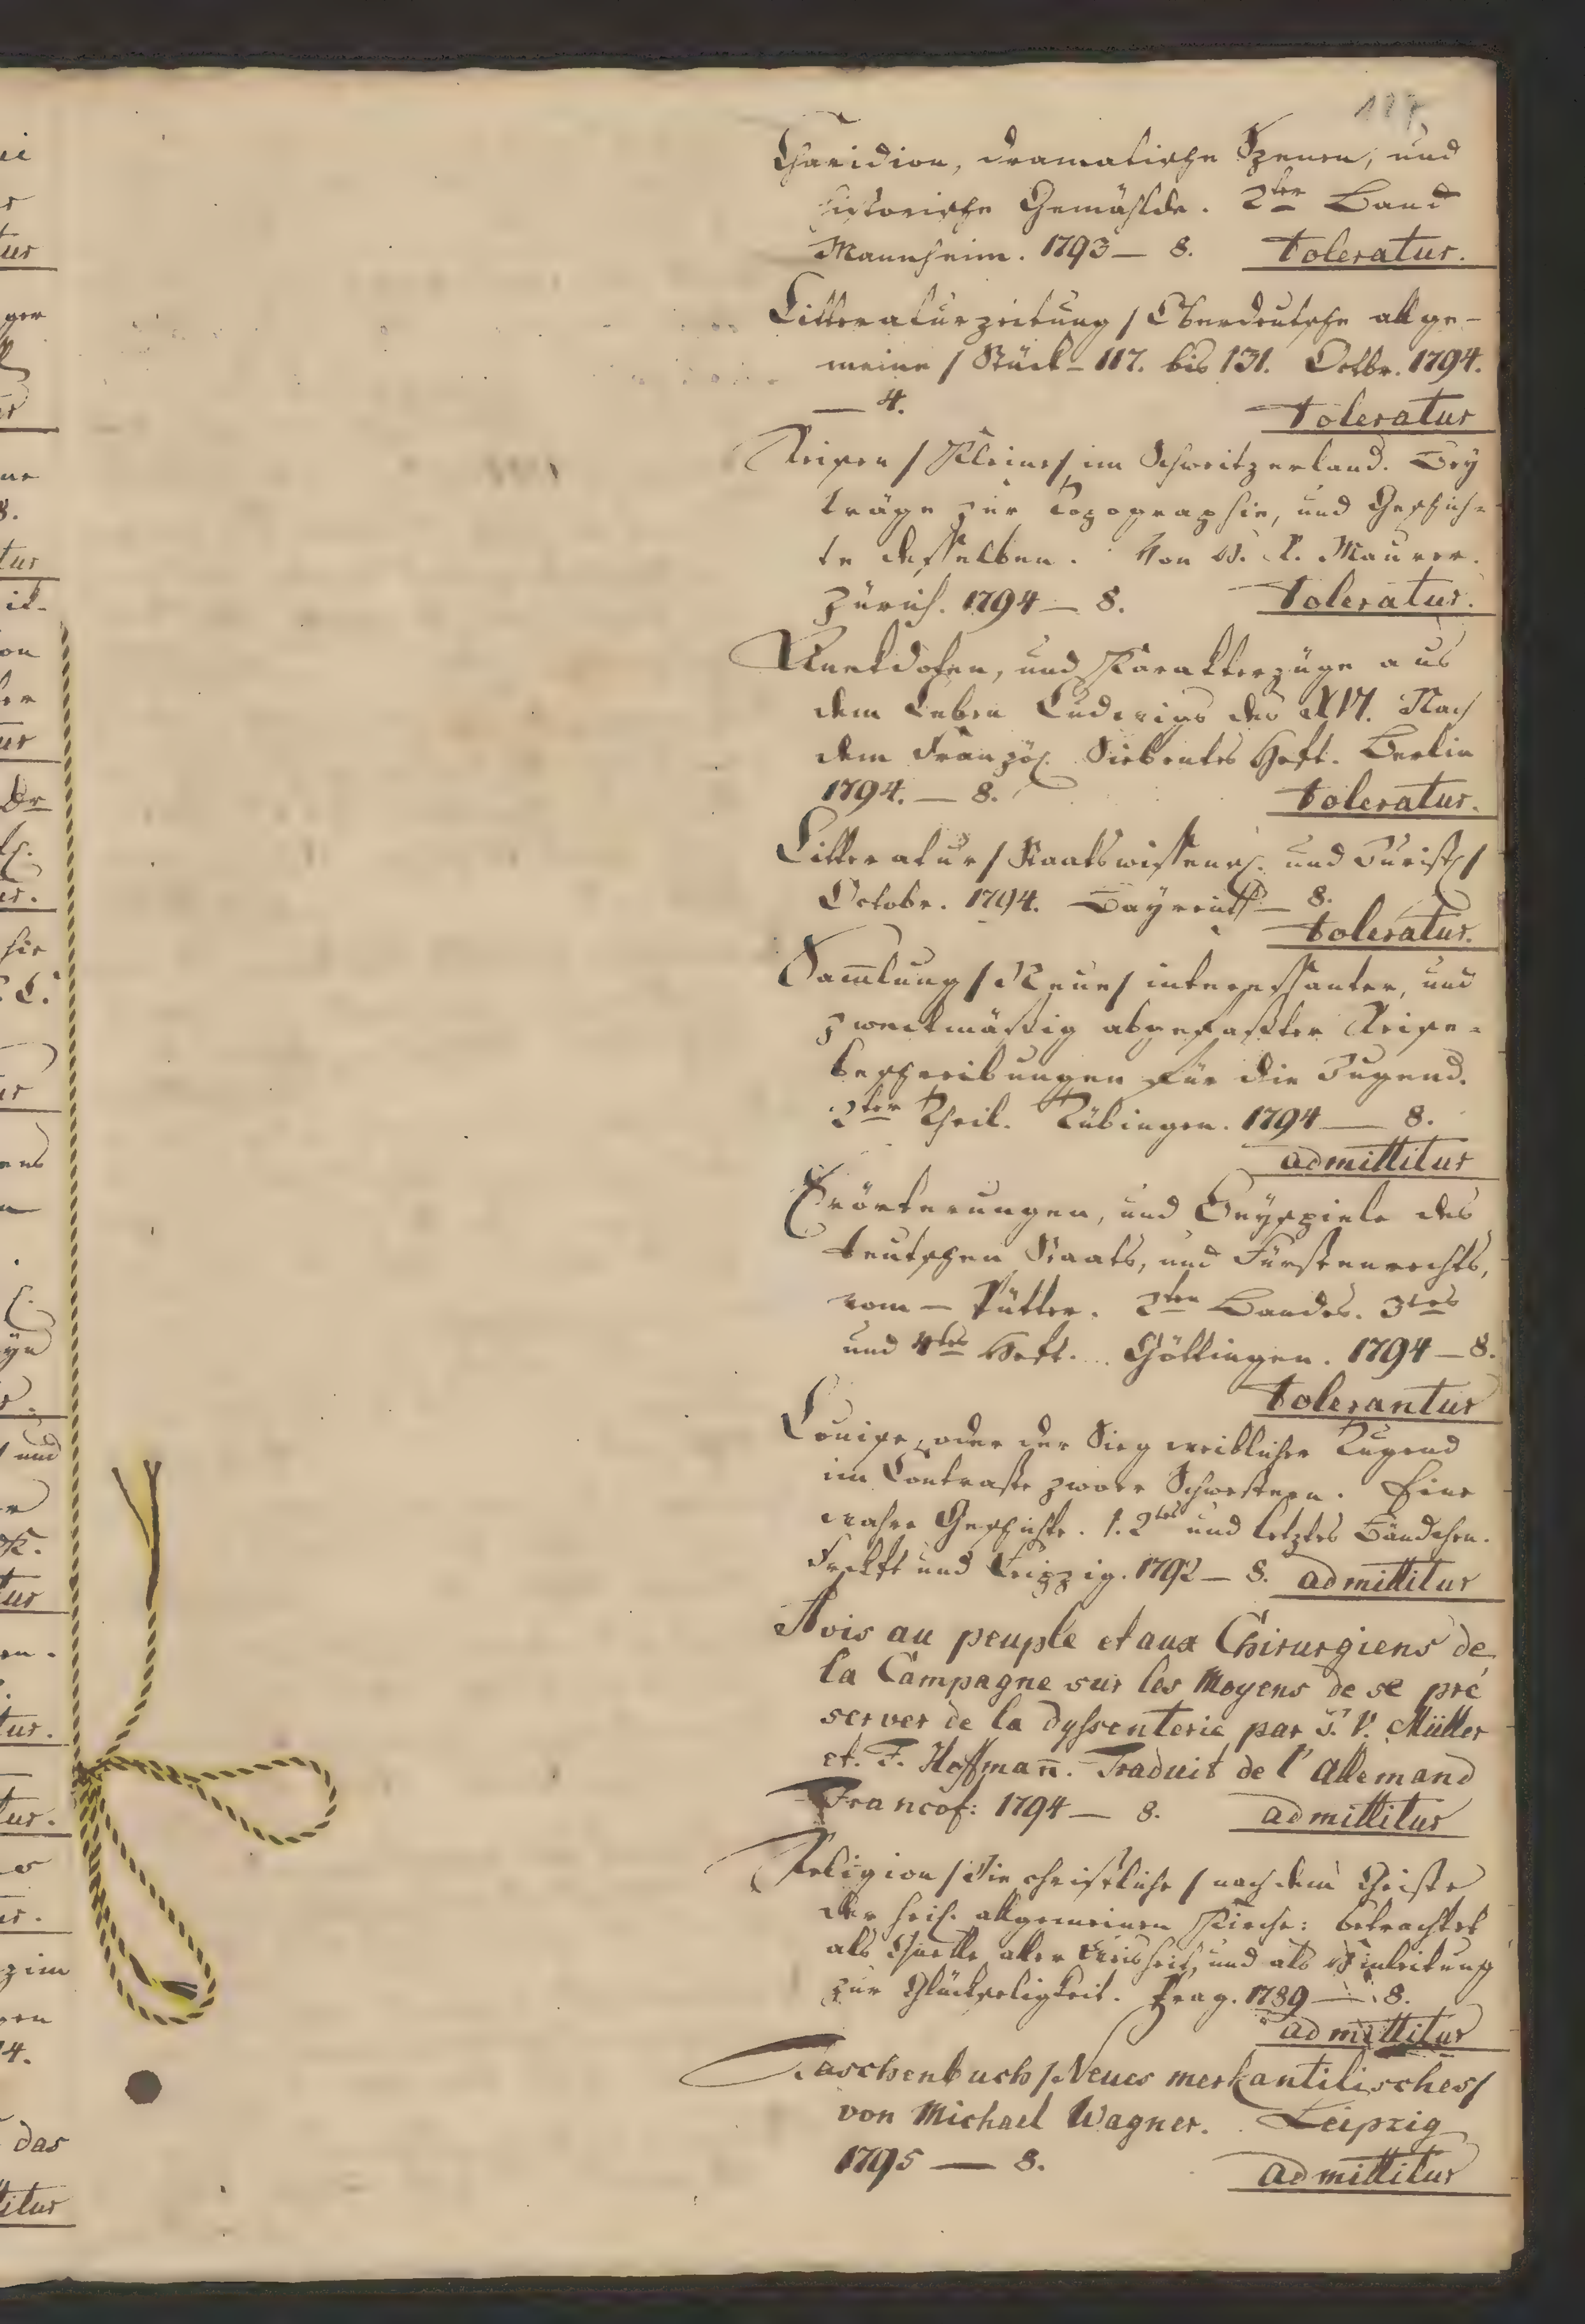 127.
Charidion, dramatische Szenen, und
historische Gemählde. 2ter Band
Mannheim. 1793 — 8. toleratur.
Litteraturzeitung / Oberdeutsche allge-
meine / Stück - 117. bis 131. Octbr. 1794.
— 4. toleratur
Reisen / Kleine / im Schweitzerland. Bey
träge zur Topographie, und Geschich-
te desselben. Von H. R. Maurer.
Zürich. 1794 — 8. toleratur.
Anekdoten, und Karakterzüge aus
dem Leben Ludwigs des XVI. Nach
dem Französ. Siebentes Heft. Berlin
1794. — 8. toleratur.
Litteratur / Staatswissensch. und Jurist /
Octobr. 1794. Bayreuth — 8.
toleratur.
Sam̄lung / Neue / interessanter, und
zweckmäßig abgefaßter Reise-
beschreibungen für die Jugend.
2ter Theil. Tübingen. 1794 — 8.
admittitur
Erörterungen, und Beyspiele des
teutschen Staats, und Fürstenrechts,
vom — Pütter. 2ten Bandes. 3tes
und 4tes Heft. Göttingen. 1794 — 8.
tolerantur
Louise, oder der Sieg weiblicher Tugend
im Contraste zwoer Schwestern. Eine
wahre Geschichte. 1. 2tes und letztes Bändchen.
Frckft und Leipzig. 1792 — 8. admittitur
Avis au peuple et aux Chirurgiens de
la Campagne sur les Moyens de se pré
server de la dyssenterie par J. V. Müller
et. F. Hoffman̄. Traduit de l'allemand
Francof: 1794 — 8. admittitur
Religion / Die christliche / nach dem Geiste
der heil. allgemeinen Kirche: betrachtet
als Quelle aller Weisheit, und als Einleitung
zur Glückseligkeit. Prag. 1789 — 8.
admittitur
Taschenbuch / Neues merkantilisches /
von Michael Wagner. Leipzig
1795 — 8. admittitur